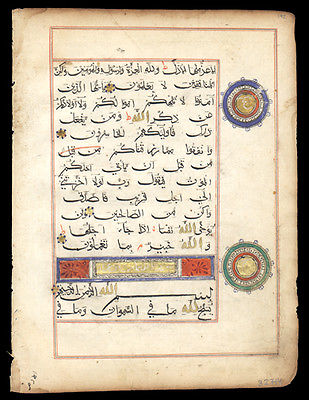 الاعز منها الاذل ولله العزة ولرسوله وللمؤمنين ولكن
المنافقين لا يعلمون يا ايها الذين
امنوا لا تلهكم اموالكم ولا اولادكم
عن ذكر الله ومن يفعل
ذلك فاولئك هم الخاسرون
وانفقوا مما رزقناكم من قبل
من قبل ان ياتي احدكم
الموت فيقول رب لولا اخرتني
الى اجل قريب فاصدق
واكن من الصالحين ولن
يؤخر الله نفسا اذا جاء اجلها
والله خبير بما تعملون
بسم الله الرحمن الرحيم
يسبح لله ما في السموات وما في